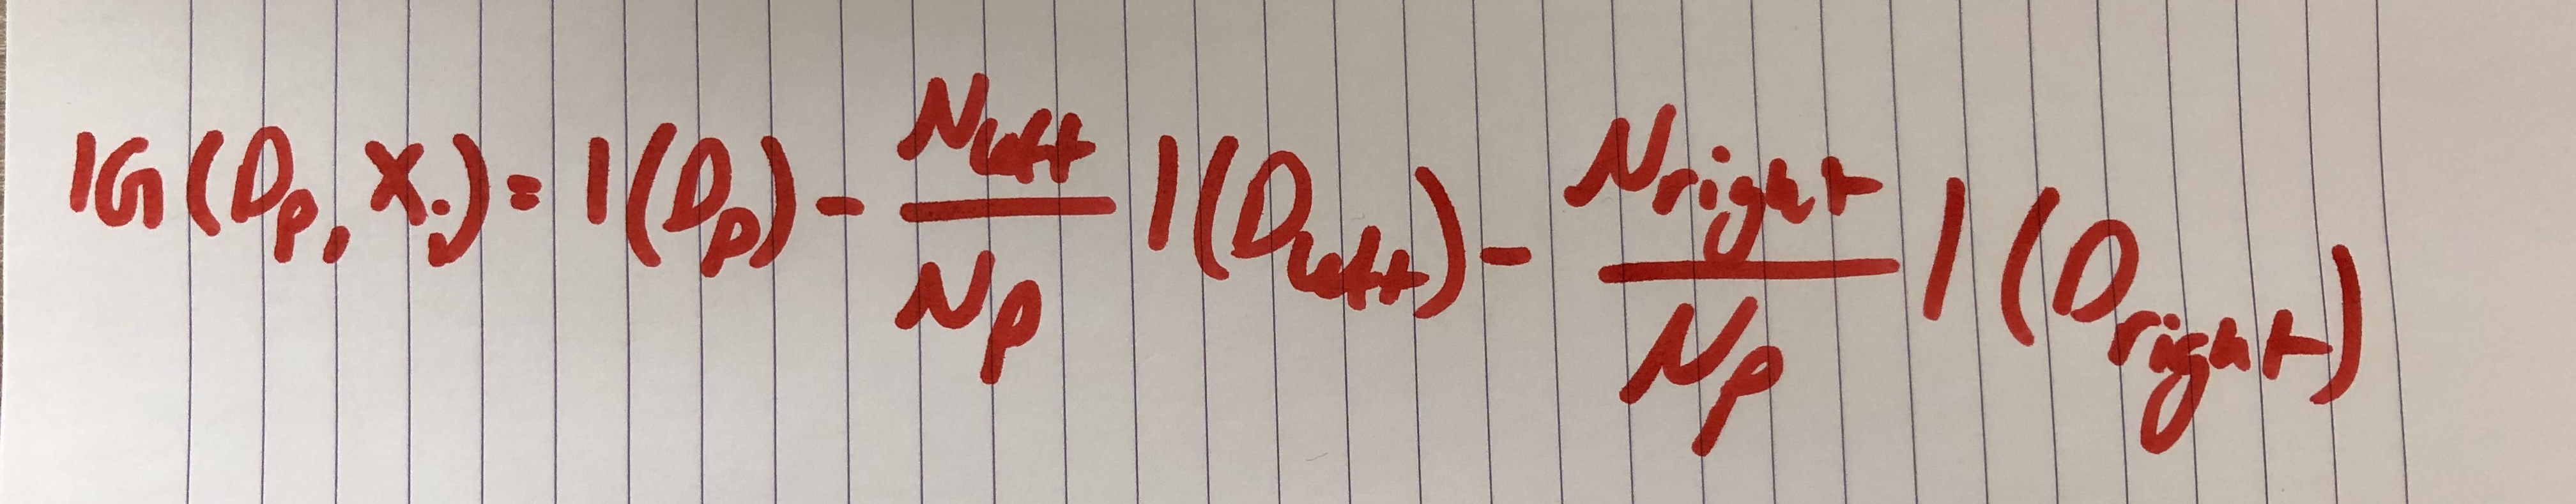 IG(D_p, x_i) = I(D_p) - \frac{N_{left}}{N_p} I(D_{left}) - \frac{N_{right}}{N_p} I(D_{right})